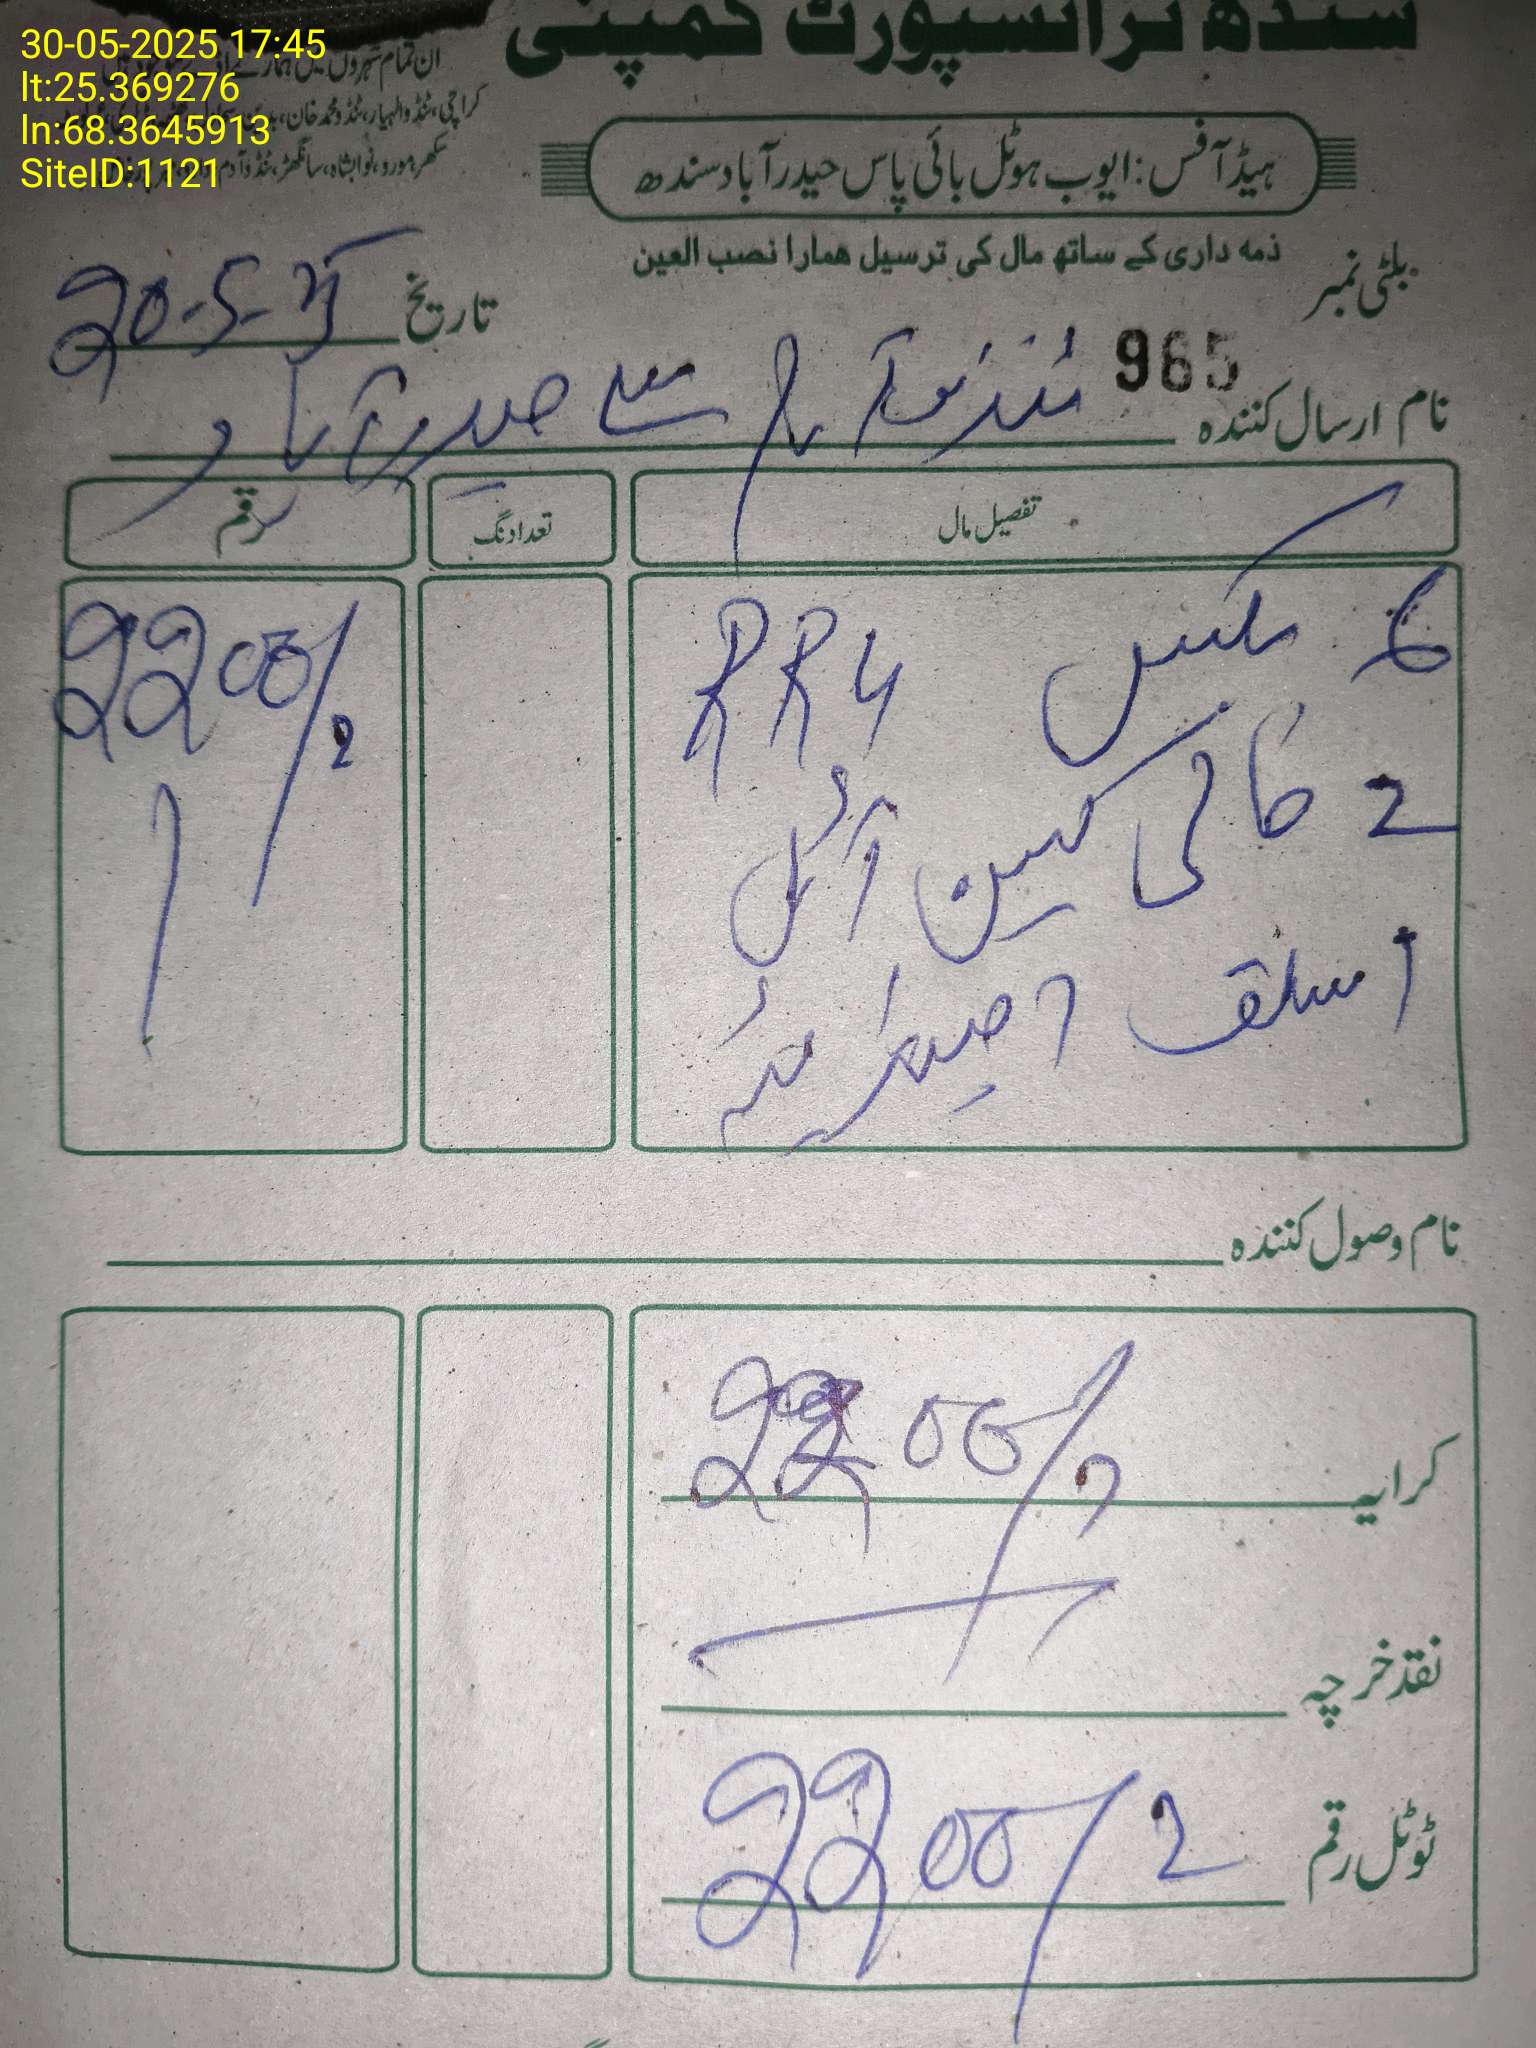 30-05-2025 17:45
lt:25.369276
ln:68.3645913
SiteID:1121
سندھ ٹرانسپورٹ کمپنی
ان تمام شہروں میں ہمارے
کراچی، ٹنڈوالہیار، ٹنڈو محمد خان،
سکھر، مورو، نوابشاہ، سانگھڑ، ٹنڈو آدم
ہیڈ آفس: ایوب ہوٹل بائی پاس حیدرآباد سندھ
ذمہ داری کے ساتھ مال کی ترسیل ہمارا نصب العین
بلٹی نمبر
965
تاریخ 20-5-25
نام ارسال کنندہ ٹنڈو آدم سے حیدرآباد
تفصیل مال تعداد نگ رقم
6 بکس RR4 2200/2
2 خالی کین آئل
1
نام وصول کنندہ
کرایہ 2200/
نقد خرچہ
ٹوٹل رقم 2200/2